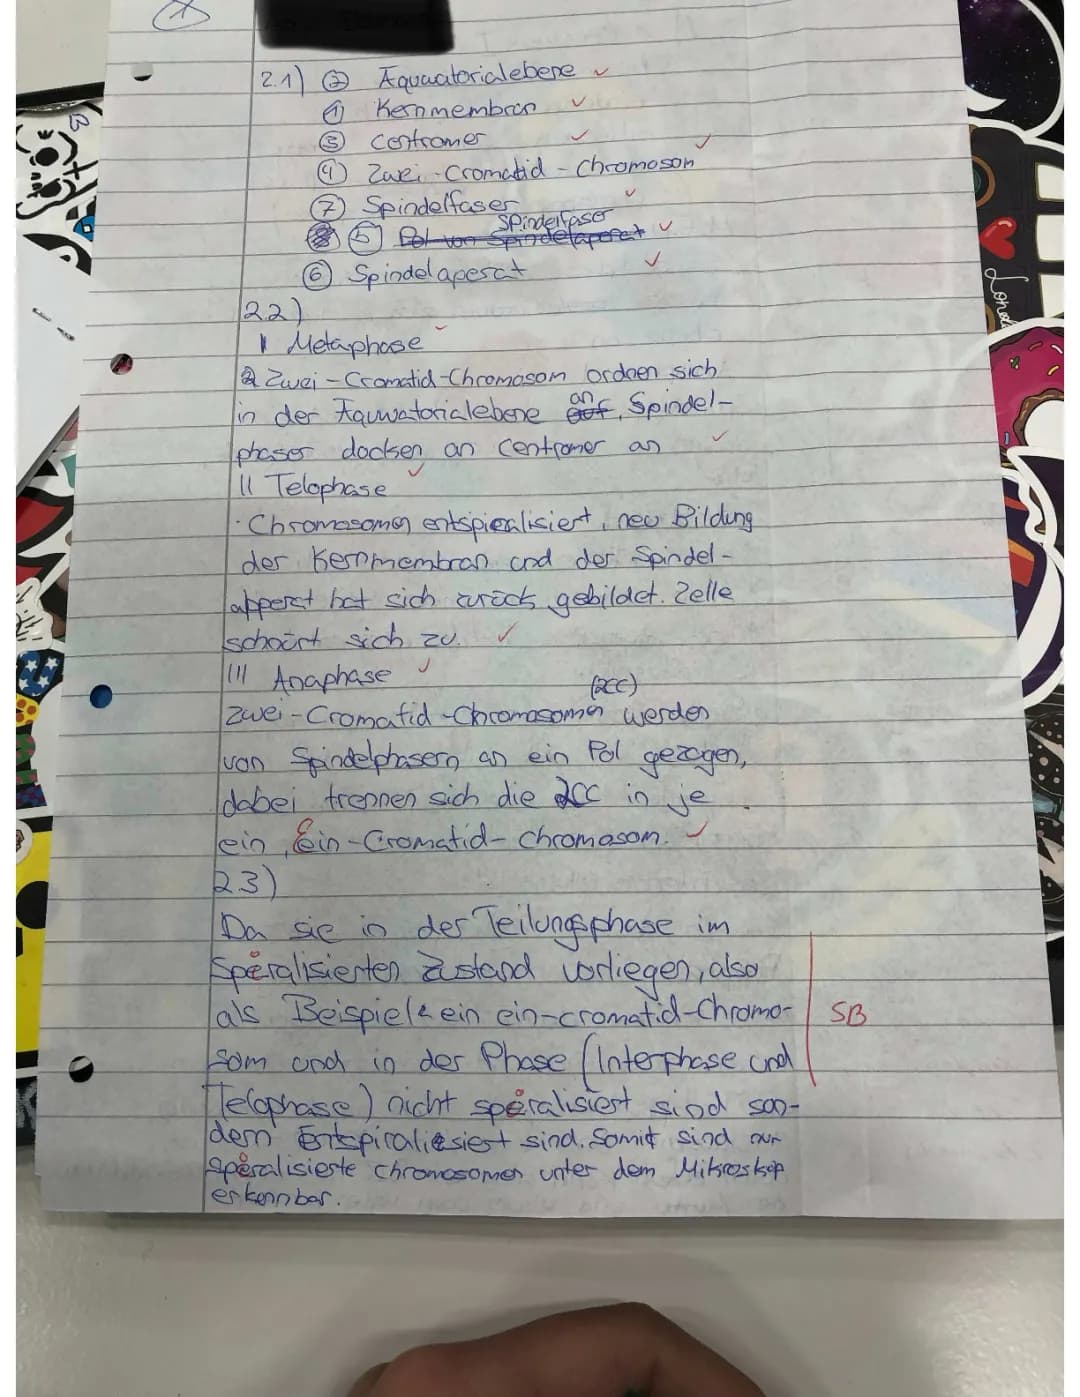 2.1) ② Äquwatorialebene
① Kernmembran
③ Centromer
④ Zwei-Cromatid-Chromosom
⑦ Spindelfaser
Spindelfaser
⑤ Pol von Spindelaperat
⑥ Spindelaperat
2.2)
I Metaphase
Zwei-Cromatid-Chromosom ordnen sich
in der Äquwatorialebene auf an, Spindel-
phaser docken an Centromer an
II Telophase
· Chromosomen entspiralisiert, neu Bildung
der Kernmembran und der Spindel-
apperat hat sich zurück gebildet. Zelle
schnürt sich zu.
III Anaphase
(2CC)
Zwei-Cromatid-Chromosomen werden
von Spindelphasern an ein Pol gezogen,
dabei trennen sich die 2CC in je
ein Ein-Cromatid-Chromosom.
2.3)
Da sie in der Teilungsphase im
Speralisierten Zustand vorliegen, also
als Beispiel ein ein-cromatid-Chromo-
som und in der Phase (Interphase und
Telophase) nicht speralisiert sind son-
dern Entspiraliesiert sind. Somit sind nur
speralisierte Chromosomen unter dem Mikroskop
erkennbar.
SB
London